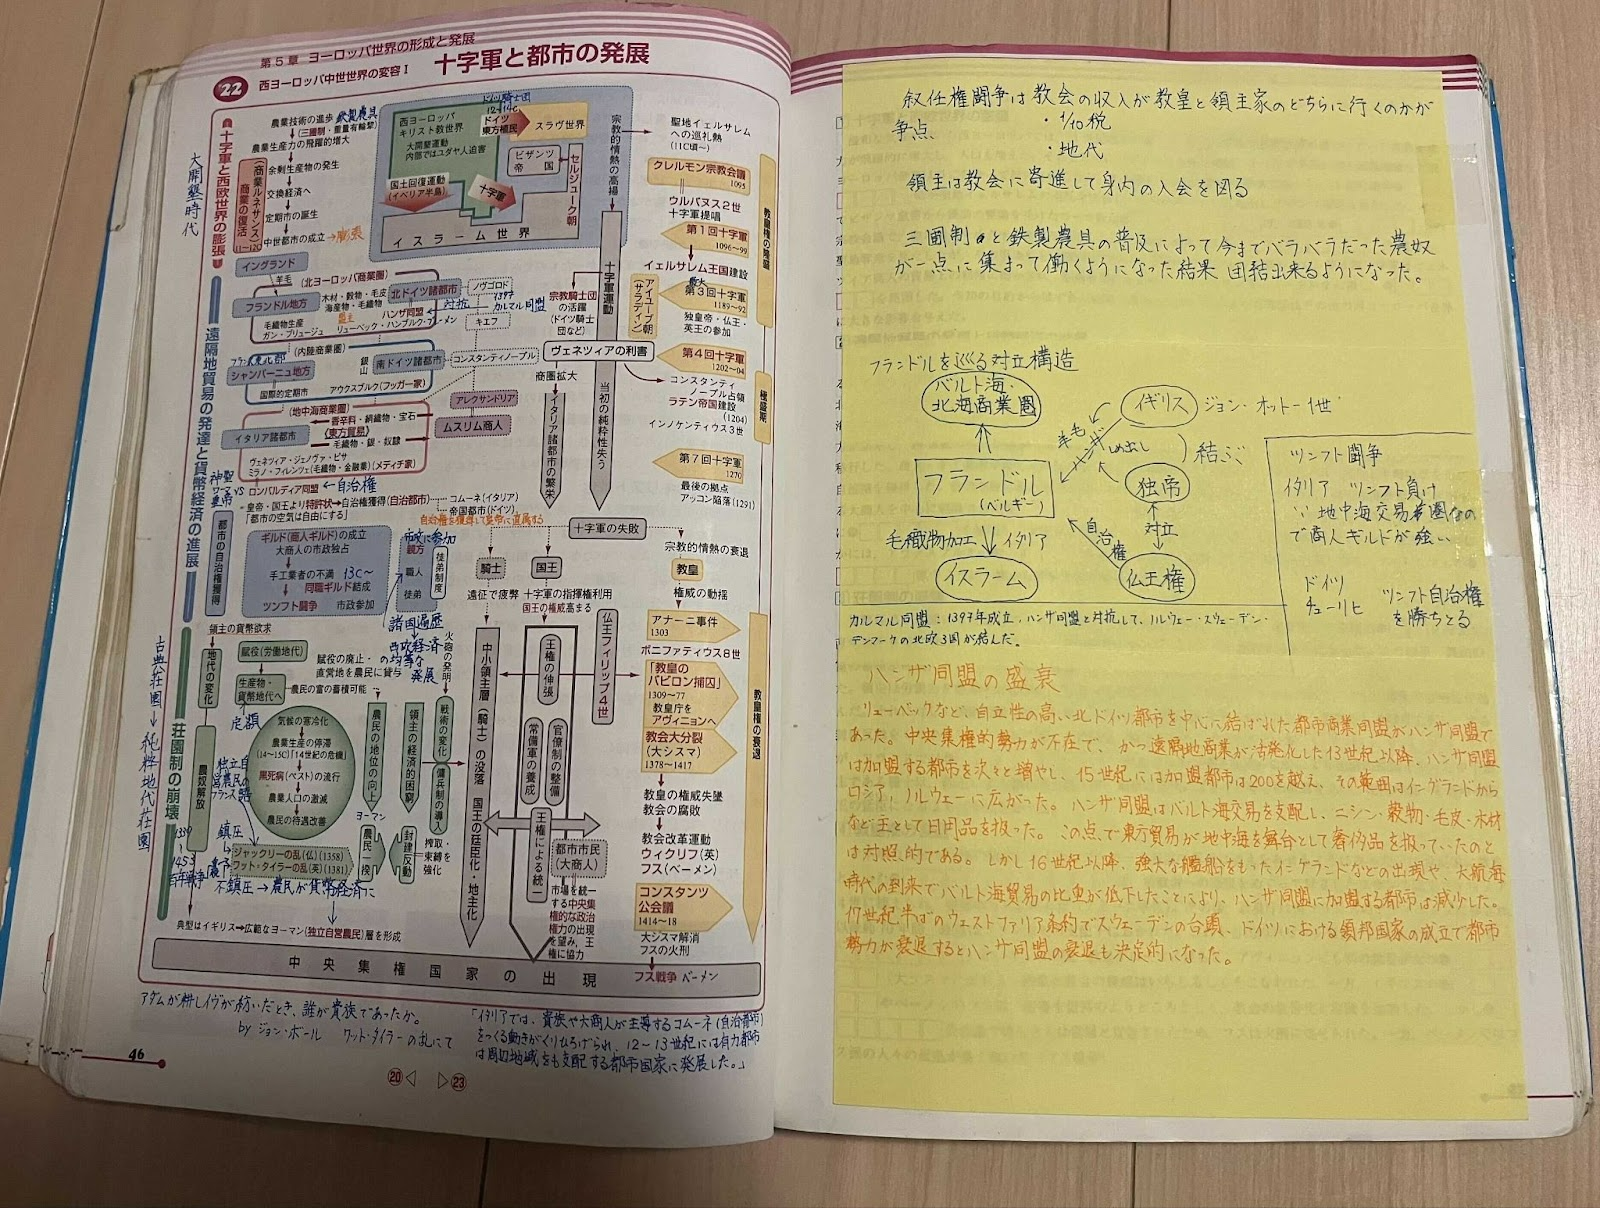 第5章 ヨーロッパ世界の形成と発展
22 西ヨーロッパ中世世界の変容Ⅰ 十字軍と都市の発展
十字軍と西欧世界の膨張
大開墾時代
農業技術の進歩 鉄製農具
(三圃制・重量有輪犂)
農業生産力の飛躍的増大
余剰生産物の発生
交換経済へ
定期市の誕生
中世都市の成立→膨張
商業の復活
(商業ルネサンス)
(11〜12C)
ドイツ騎士団
12〜14C
西ヨーロッパ
キリスト教世界
大開墾運動
内部ではユダヤ人迫害
ドイツ
東方植民
スラヴ世界
ビザンツ
帝国
セルジューク朝
国土回復運動
(イベリア半島)
十字軍
イスラーム世界
宗教的情熱の高揚
聖地イェルサレム
への巡礼熱
(11C頃〜)
クレルモン宗教会議
1095
ウルバヌス2世
十字軍提唱
第1回十字軍
1096〜99
イェルサレム王国建設
第3回十字軍
1189〜92
独皇帝・仏王・
英王の参加
アイユーブ朝
(サラディン)
第4回十字軍
1202〜04
コンスタンティ
ノープル占領
ラテン帝国建設
(1204)
インノケンティウス3世
第7回十字軍
1270
最後の拠点
アッコン陥落(1291)
教皇権の隆盛
極盛期
教皇権の衰退
遠隔地貿易の発達と貨幣経済の進展
イングランド
羊毛
(北ヨーロッパ商業圏)
フランドル地方
木材・穀物・毛皮
海産物・毛織物
北ドイツ諸都市
ノヴゴロド
毛織物生産
ガン・ブリュージュ
ハンザ同盟
盟主
リューベック・ハンブルク・ブレーメン
対抗
1397
カルマル同盟
キエフ
(内陸商業圏)
フランス東北部
シャンパーニュ地方
国際的定期市
銀
山
南ドイツ諸都市
アウクスブルク(フッガー家)
コンスタンティノープル
(地中海商業圏)
香辛料・絹織物・宝石
(東方貿易)
毛織物・銀・奴隷
イタリア諸都市
アレクサンドリア
ムスリム商人
ヴェネツィア・ジェノヴァ・ピサ
ミラノ・フィレンツェ(毛織物・金融業)(メディチ家)
神聖ローマ皇帝 vs ロンバルディア同盟 ←自治権
都市の自治権獲得
皇帝・国王より特許状→自治権獲得(自治都市)
コムーネ(イタリア)
帝国都市(ドイツ)
「都市の空気は自由にする」
自治権を獲得して皇帝に直属する
十字軍運動
宗教騎士団
の活躍
(ドイツ騎士
団など)
ヴェネツィアの利害
商圏拡大
イタリア諸都市の繁栄
当初の純粋性失う
十字軍の失敗
ギルド(商人ギルド)の成立
大商人の市政独占
手工業者の不満 13C〜
同職ギルド結成
ツンフト闘争 市政参加
市政に参加
親方
職人
徒弟
徒弟制度
諸国遍歴
西欧経済
の均等な
発展
騎士
遠征で疲弊
国王
十字軍の指揮権利用
国王の権威高まる
宗教的情熱の衰退
教皇
権威の動揺
アナーニ事件
1303
ボニファティウス8世
「教皇の
バビロン捕囚」
1309〜77
教皇庁を
アヴィニョンへ
教会大分裂
(大シスマ)
1378〜1417
教皇の権威失墜
教会の腐敗
教会改革運動
ウィクリフ(英)
フス(ベーメン)
コンスタンツ
公会議
1414〜18
大シスマ解消
フスの火刑
フス戦争 ベーメン
古典荘園→純粋地代荘園
荘園制の崩壊
領主の貨幣欲求
地代の変化
賦役(労働地代)
賦役の廃止・
直営地を農民に貸与
生産物・
貨幣地代へ
農民の富の蓄積可能
定額
気候の寒冷化
農業生産の停滞
(14〜15C)「14世紀の危機」
黒死病(ペスト)の流行
農業人口の激減
農民の待遇改善
農奴解放
農民の地位の向上
領主の経済的困窮
火砲の発明
戦術の変化
傭兵制の導入
ヨーマン
農民一揆
封建反動
搾取・
束縛を
強化
鎮圧
1339
1453
百年戦争
ジャックリーの乱(仏)(1358)
ワット・タイラーの乱(英)(1381)
不鎮圧→農民が貨幣経済に
典型はイギリス→広範なヨーマン(独立自営農民)層を形成
中小領主層(騎士)の没落
国王の廷臣化・地主化
王権の伸張
常備軍の養成
官僚制の整備
仏王フィリップ4世
王権による統一
都市市民
(大商人)
市場を統一
する中央集
権的な政治
権力の出現
を望み、王
権に協力
中央集権国家の出現
アダムが耕しイヴが紡いだとき、誰が貴族であったか。
by ジョン・ボール ワット・タイラーの乱にて
「イタリアでは、貴族や大商人が主導するコムーネ(自治都市)
をつくる動きがくりひろげられ、12〜13世紀には有力都市
は周辺地域をも支配する都市国家に発展した。」
46
⑳◁ ▷㉓
叙任権闘争は教会の収入が教皇と領主家のどちらに行くのかが
争点
・1/10税
・地代
領主は教会に寄進して身内の入会を図る
三圃制と鉄製農具の普及によって今までバラバラだった農奴
が一点に集まって働くようになった結果 団結出来るようになった。
フランドルを巡る対立構造
バルト海・
北海商業圏
イギリス ジョン・オットー1世
羊毛
しめ出し
結ぶ
フランドル
(ベルギー)
独帝
毛織物加工 イタリア
自治権
対立
イスラーム
仏王権
ツンフト闘争
イタリア ツンフト負け
∵ 地中海交易範囲なの
で商人ギルドが強い
ドイツ
チューリヒ
ツンフト自治権
を勝ちとる
カルマル同盟:1397年成立。ハンザ同盟と対抗して、ノルウェー・スウェーデン・
デンマークの北欧3国が結んだ。
ハンザ同盟の盛衰
リューベックなど、自立性の高い北ドイツ都市を中心に結ばれた都市商業同盟がハンザ同盟で
あった。中央集権的勢力が不在で、かつ遠隔地商業が活発化した13世紀以降、ハンザ同盟
は加盟する都市を次々と増やし、15世紀には加盟都市は200を越え、その範囲はイングランドから
ロシア、ノルウェーに広がった。ハンザ同盟はバルト海交易を支配し、ニシン・穀物・毛皮・木材
など主として日用品を扱った。この点で東方貿易が地中海を舞台として奢侈品を扱っていたのと
は対照的である。しかし16世紀以降、強大な艦船をもったイングランドなどの出現や、大航海
時代の到来でバルト海貿易の比重が低下したことにより、ハンザ同盟に加盟する都市は減少した。
17世紀半ばのウェストファリア条約でスウェーデンの台頭、ドイツにおける領邦国家の成立で都市
勢力が衰退するとハンザ同盟の衰退も決定的になった。